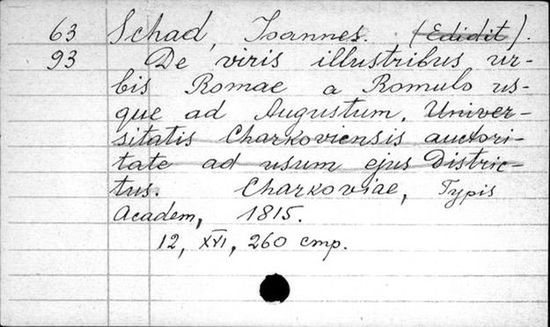 63 Schad, Ioannes. (Edidit).
93 De viris illustribus ur-
bis Romae a Romulo us-
que ad Augustum, Univer-
sitatis Charkoviensis auctori-
tate ad usum ejus Distric-
tus. Charkoviae, Typis
Academ, 1815.
12, XVI, 260 стр.